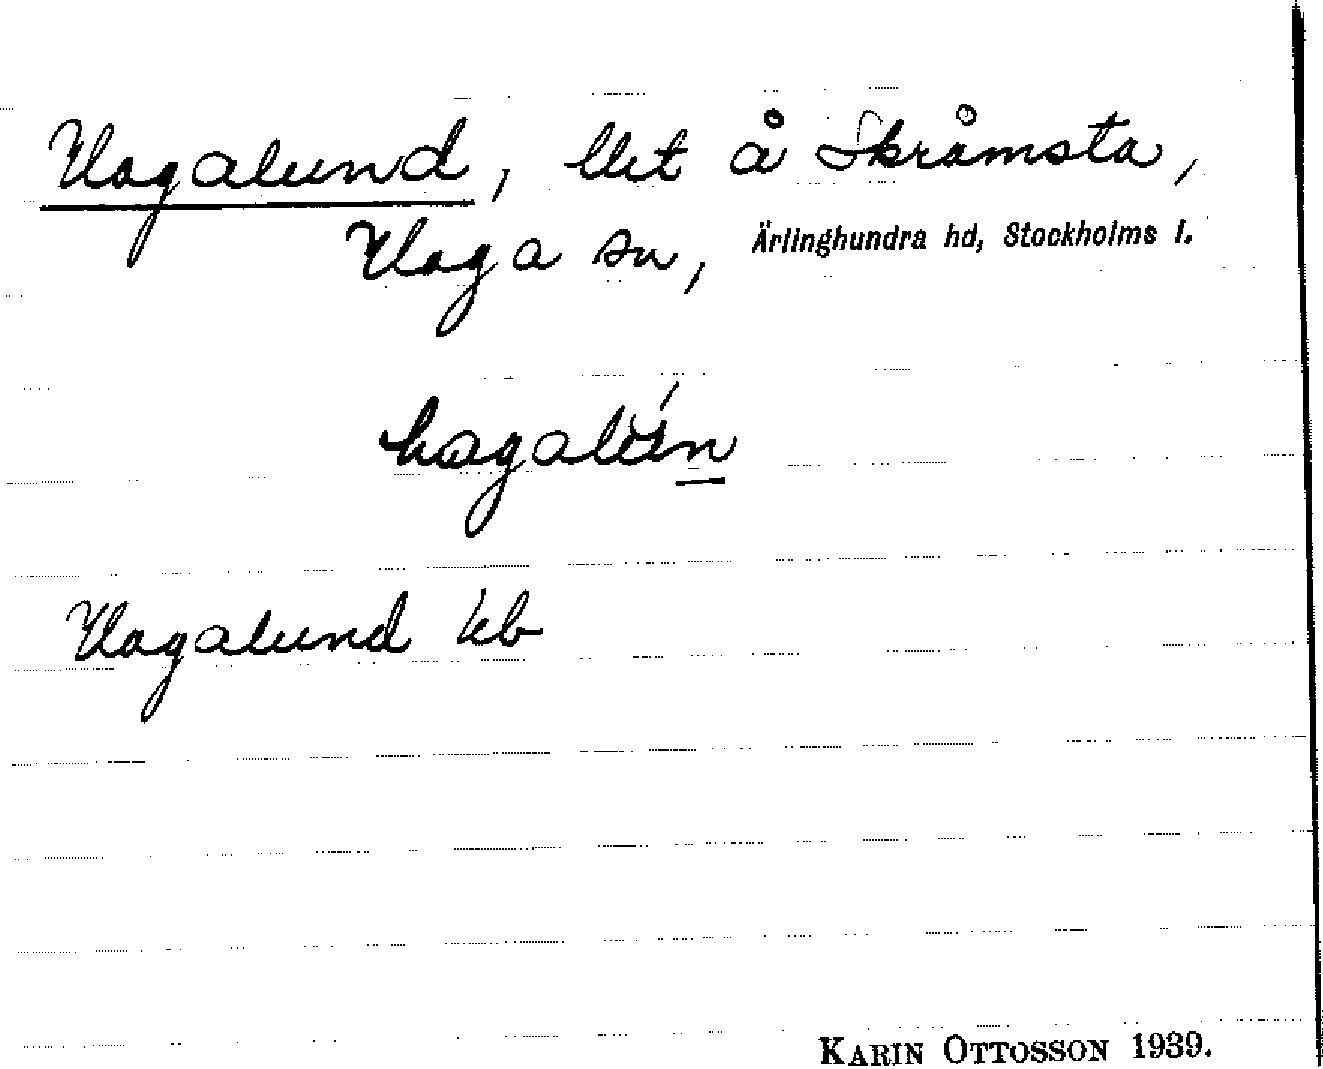 Hagalund, llit å Skråmsta,
Haga sn, Ärlinghundra hd, Stockholms l.
hagalún
Hagalund kb
KARIN OTTOSSON 1939.